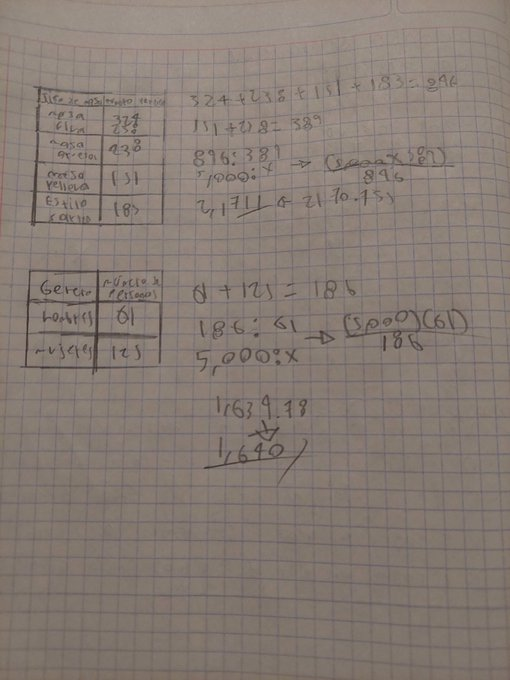 masa
324
masa
238
masa
rellena
151
Estilo
183
324+238+151+183=896
151+238=389
896:389
5,000:x → (5,000)(389)
896
2,1711 ← 2170.75
Genero
número de
personas
hombres
61
mujeres
125
61+125=186
186:61
5,000:x → (5,000)(61)
186
1,639.78
1,640